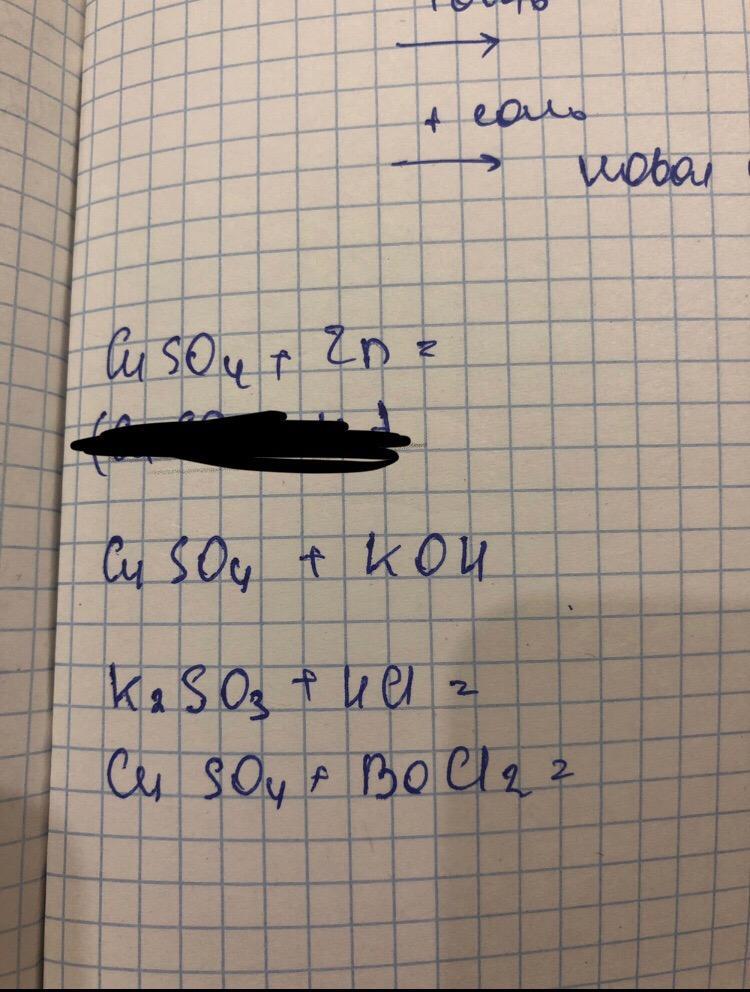 + соль
новая
CuSO₄ + Zn =
CuSO₄ + KOH
K₂SO₃ + HCl =
CuSO₄ + BaCl₂ =